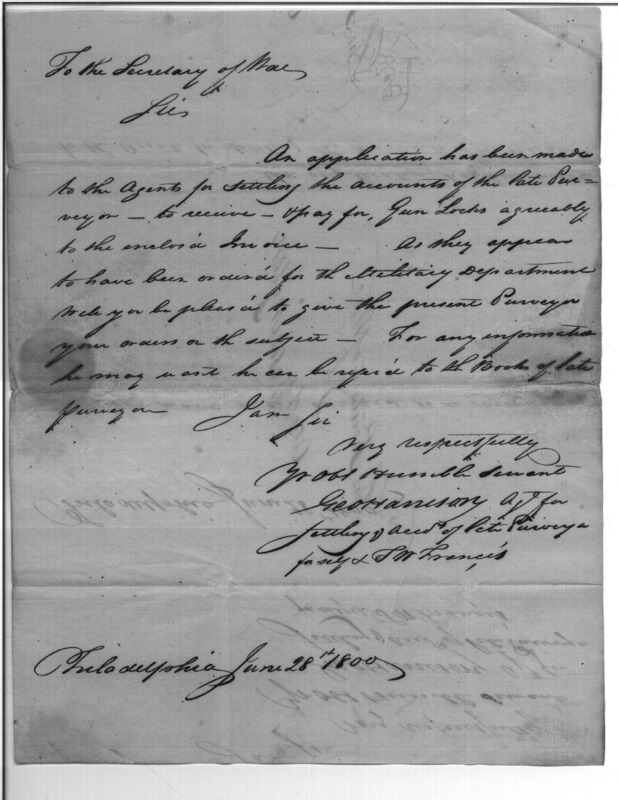 To the Secretary of War
Sir
An application has been made
to the Agents for settling the accounts of the late Pur=
veyor — to receive — & pay for, Gun Locks agreeably
to the enclos'd Invoice — As they appear
to have been order'd for th Military Department
will you be pleas'd to give the present Purveyor
your orders on th subject — For any informatio
he may want he can be refer'd to th Books of late
Purveyor I am Sir
Very respectfully
Yr Obt Humble Servant
Geo Harrison Agt for
settling Accots of late Purveyor
for self & T W Francis
Philadelphia June 28th 1800